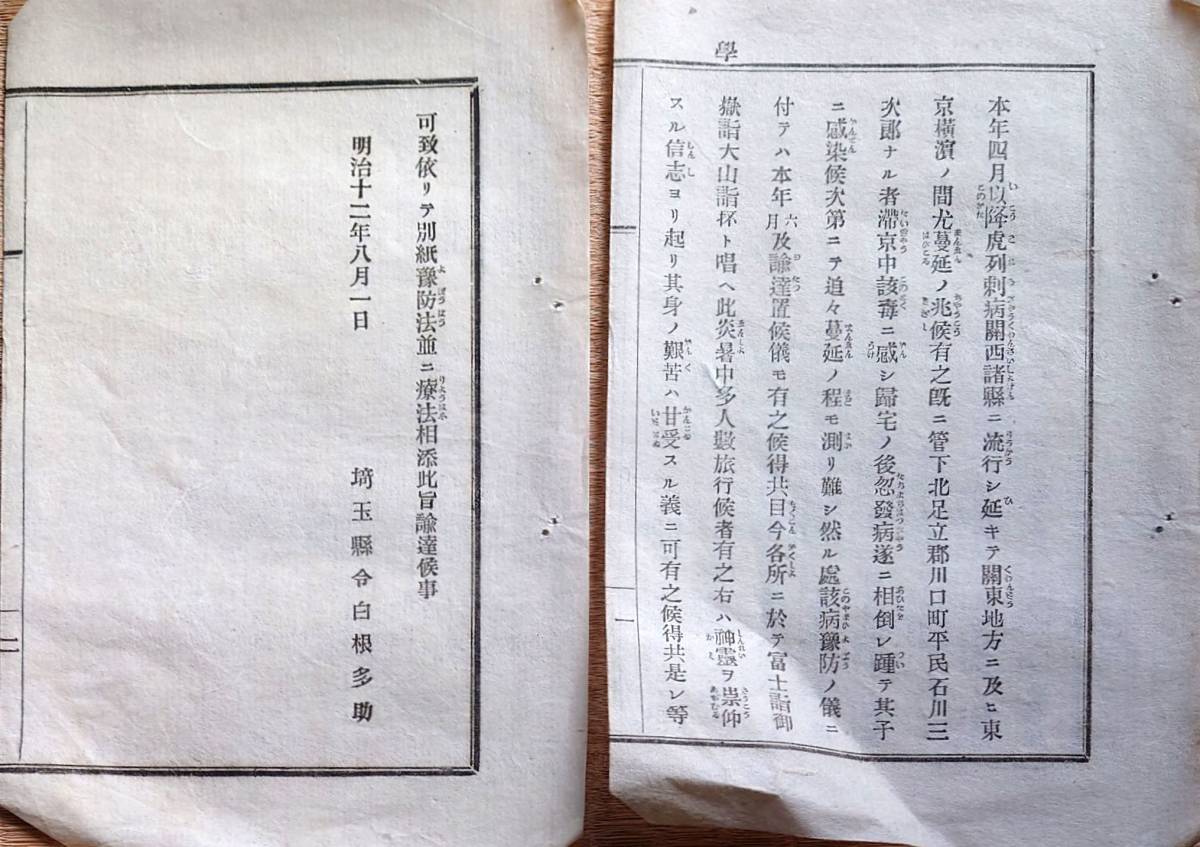 學
本年四月以降虎列剌病關西諸縣ニ流行シ延キテ關東地方ニ及ヒ東
京橫濱ノ間尤蔓延ノ兆候有之既ニ管下北足立郡川口町平民石川三
次郎ナル者滯京中該毒ニ感シ歸宅ノ後忽發病遂ニ相倒レ踵テ其子
ニ感染候次第ニテ追々蔓延ノ程モ測リ難シ然ル處該病豫防ノ儀ニ
付テハ本年六月及諭達置候儀モ有之候得共目今各所ニ於テ富士詣御
嶽詣大山詣抔ト唱ヘ此炎暑中多人數旅行候者有之右ハ神靈ヲ崇仰
スル信志ヨリ起リ其身ノ艱苦ハ甘受スル義ニ可有之候得共是レ等
一
可致依リテ別紙豫防法並ニ療法相添此旨諭達候事
明治十二年八月一日
埼玉縣令白根多助
二